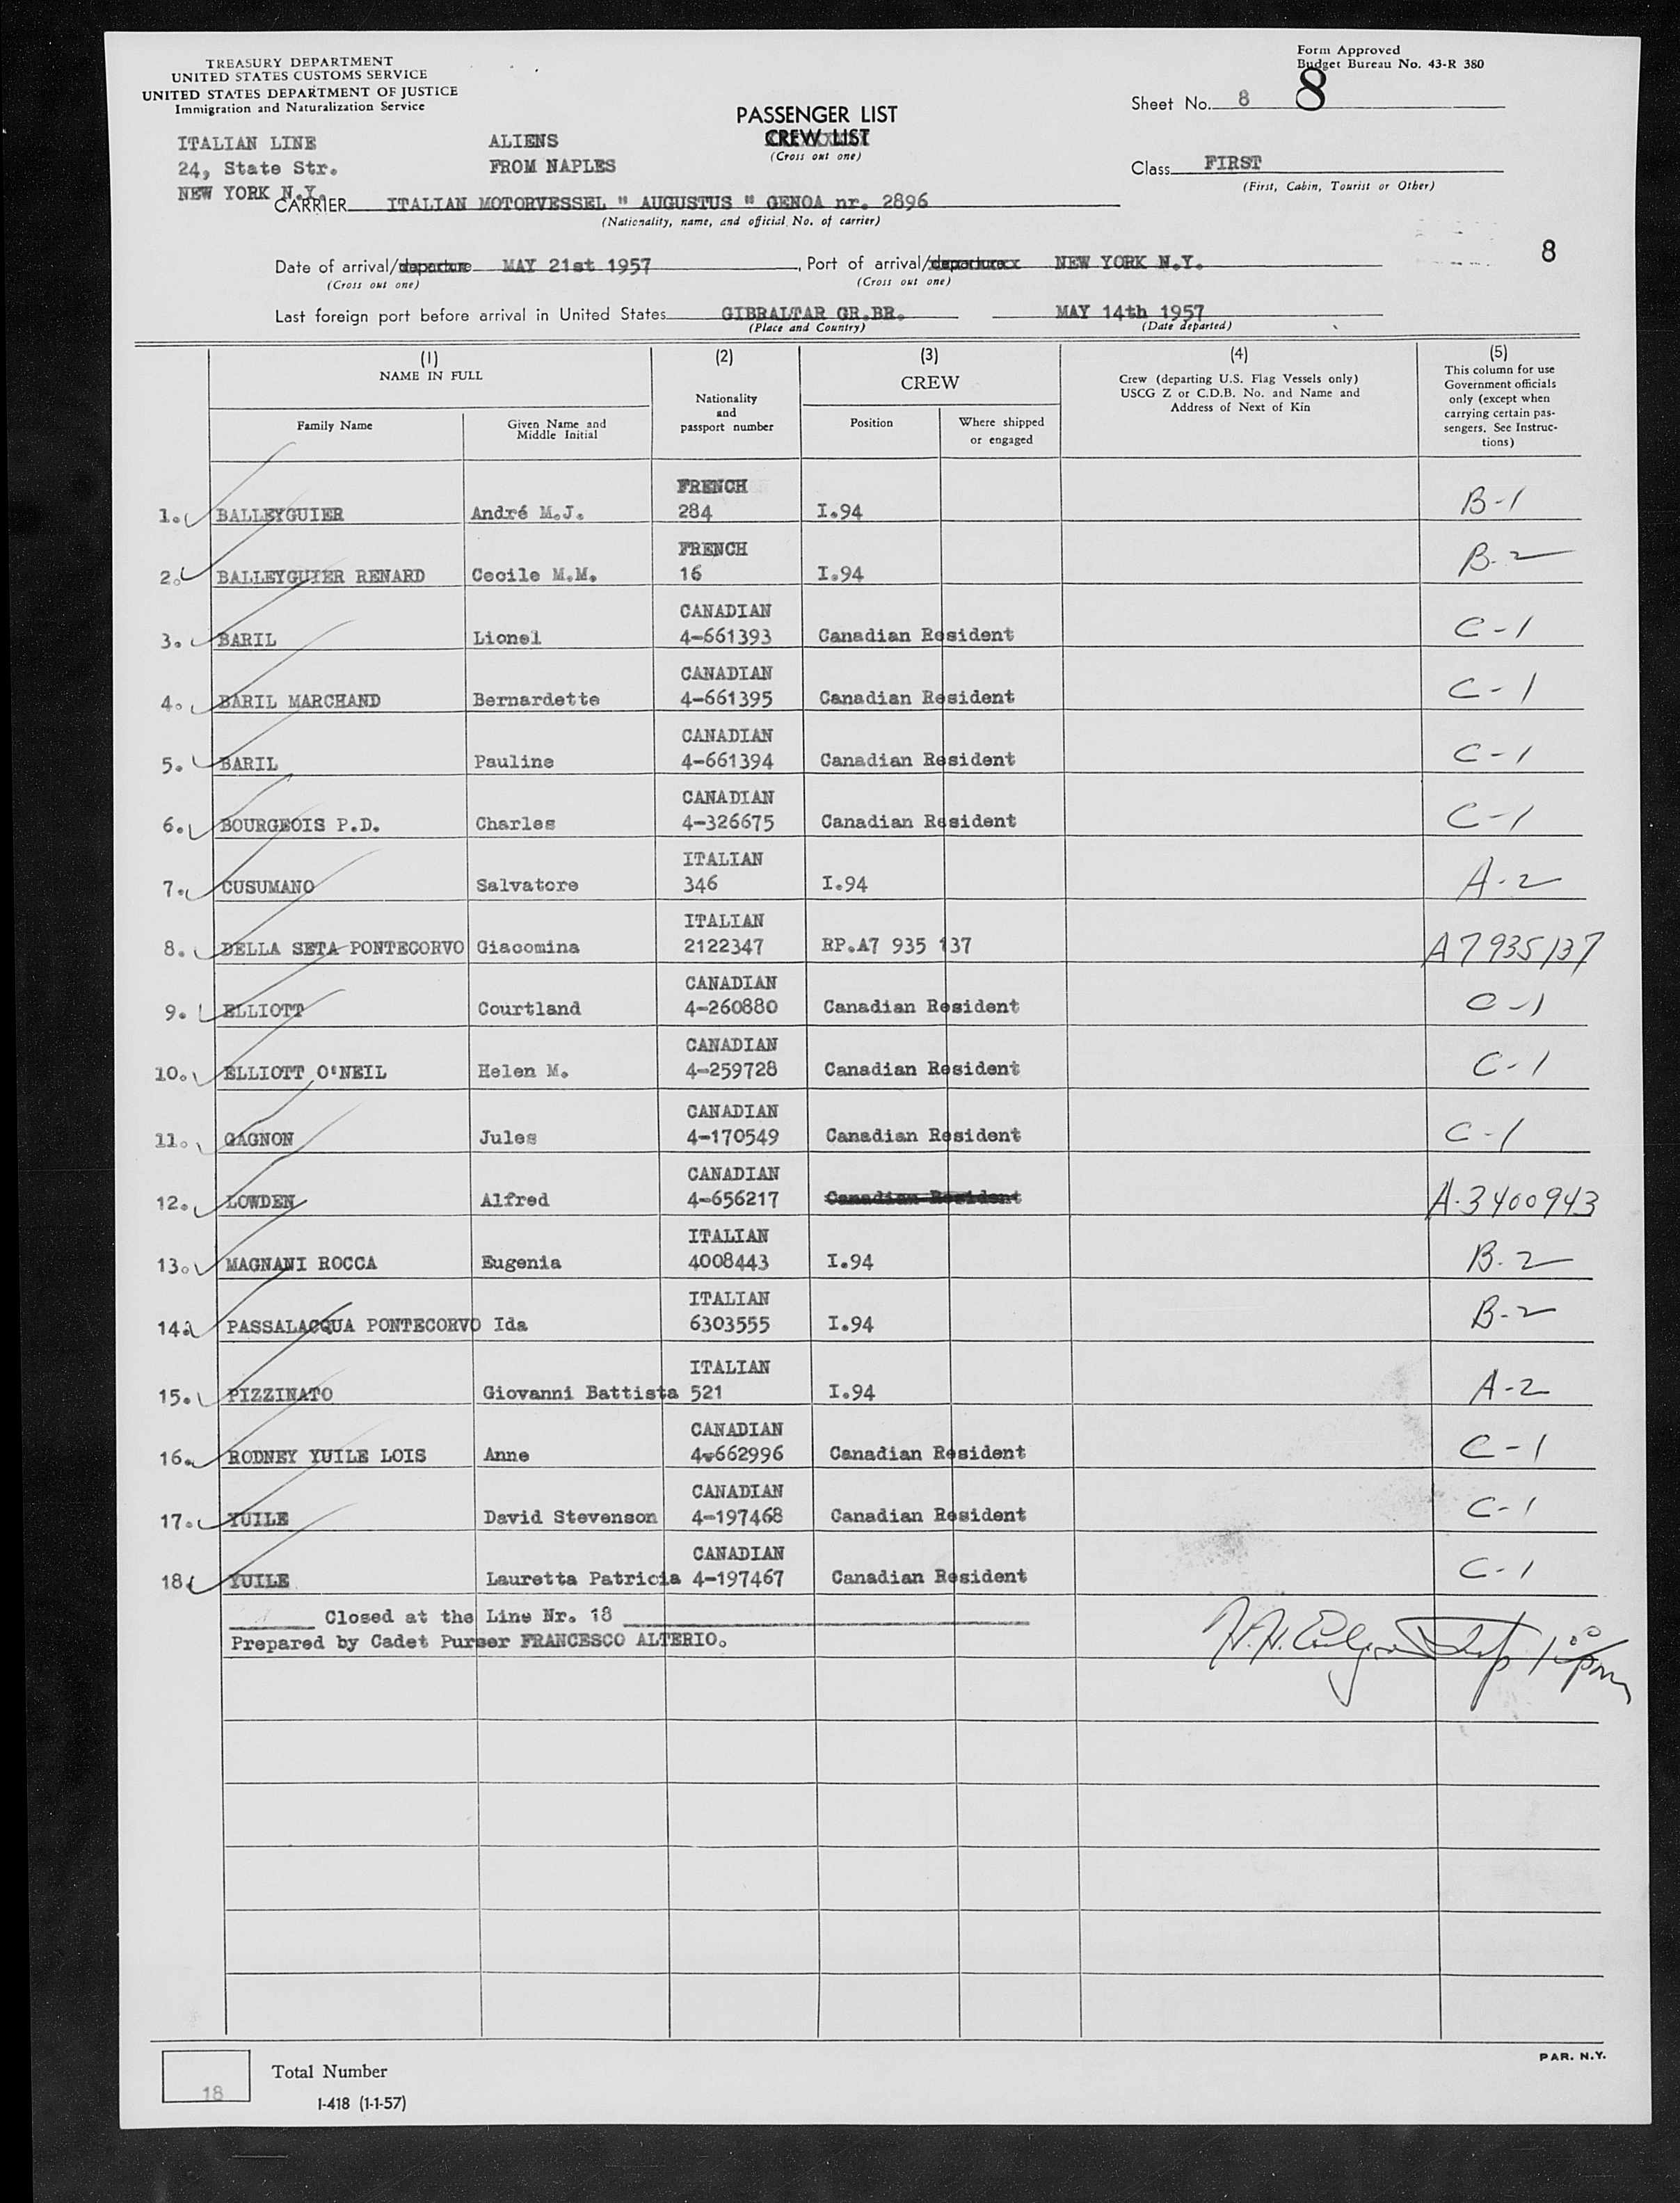 TREASURY DEPARTMENT
UNITED STATES CUSTOMS SERVICE
UNITED STATES DEPARTMENT OF JUSTICE
Immigration and Naturalization Service
Form Approved
Budget Bureau No. 43-R 380
Sheet No. 8 8
PASSENGER LIST
CREW LIST
(Cross out one)
ITALIAN LINE
24, State Str.
NEW YORK N.Y.
ALIENS
FROM NAPLES
Class FIRST
(First, Cabin, Tourist or Other)
CARRIER ITALIAN MOTORVESSEL " AUGUSTUS " GENOA nr. 2896
(Nationality, name, and official No. of carrier)
8
Date of arrival/departure MAY 21st 1957, Port of arrival/departure NEW YORK N.Y.
(Cross out one) (Cross out one)
Last foreign port before arrival in United States GIBRALTAR GR.BR. MAY 14th 1957
(Place and Country) (Date departed)
(1)
NAME IN FULL
Family Name
Given Name and
Middle Initial
(2)
Nationality
and
passport number
(3)
CREW
Position
Where shipped
or engaged
(4)
Crew (departing U.S. Flag Vessels only)
USCG Z or C.D.B. No. and Name and
Address of Next of Kin
(5)
This column for use
Government officials
only (except when
carrying certain pas-
sengers. See Instruc-
tions)
FRENCH
1. BALLEYGUIER André M.J. 284 I.94 B-1
FRENCH
2. BALLEYGUIER RENARD Cecile M.M. 16 I.94 B-2
CANADIAN
3. BARIL Lionel 4-661393 Canadian Resident C-1
CANADIAN
4. BARIL MARCHAND Bernardette 4-661395 Canadian Resident C-1
CANADIAN
5. BARIL Pauline 4-661394 Canadian Resident C-1
CANADIAN
6. BOURGEOIS P.D. Charles 4-326675 Canadian Resident C-1
ITALIAN
7. CUSUMANO Salvatore 346 I.94 A-2
ITALIAN
8. DELLA SETA PONTECORVO Giacomina 2122347 RP.A7 935 137 A7935137
CANADIAN
9. ELLIOTT Courtland 4-260880 Canadian Resident C-1
CANADIAN
10. ELLIOTT O'NEIL Helen M. 4-259728 Canadian Resident C-1
CANADIAN
11. GAGNON Jules 4-170549 Canadian Resident C-1
CANADIAN
12. LOWDEN Alfred 4-656217 Canadian Resident A-3400943
ITALIAN
13. MAGNANI ROCCA Eugenia 4008443 I.94 B-2
ITALIAN
14. PASSALACQUA PONTECORVO Ida 6303555 I.94 B-2
ITALIAN
15. PIZZINATO Giovanni Battista 521 I.94 A-2
CANADIAN
16. RODNEY YUILE LOIS Anne 4-662996 Canadian Resident C-1
CANADIAN
17. YUILE David Stevenson 4-197468 Canadian Resident C-1
CANADIAN
18. YUILE Lauretta Patricia 4-197467 Canadian Resident C-1
Closed at the Line Nr. 18
Prepared by Cadet Purser FRANCESCO ALTERIO.
18
Total Number
I-418 (1-1-57)
PAR. N.Y.